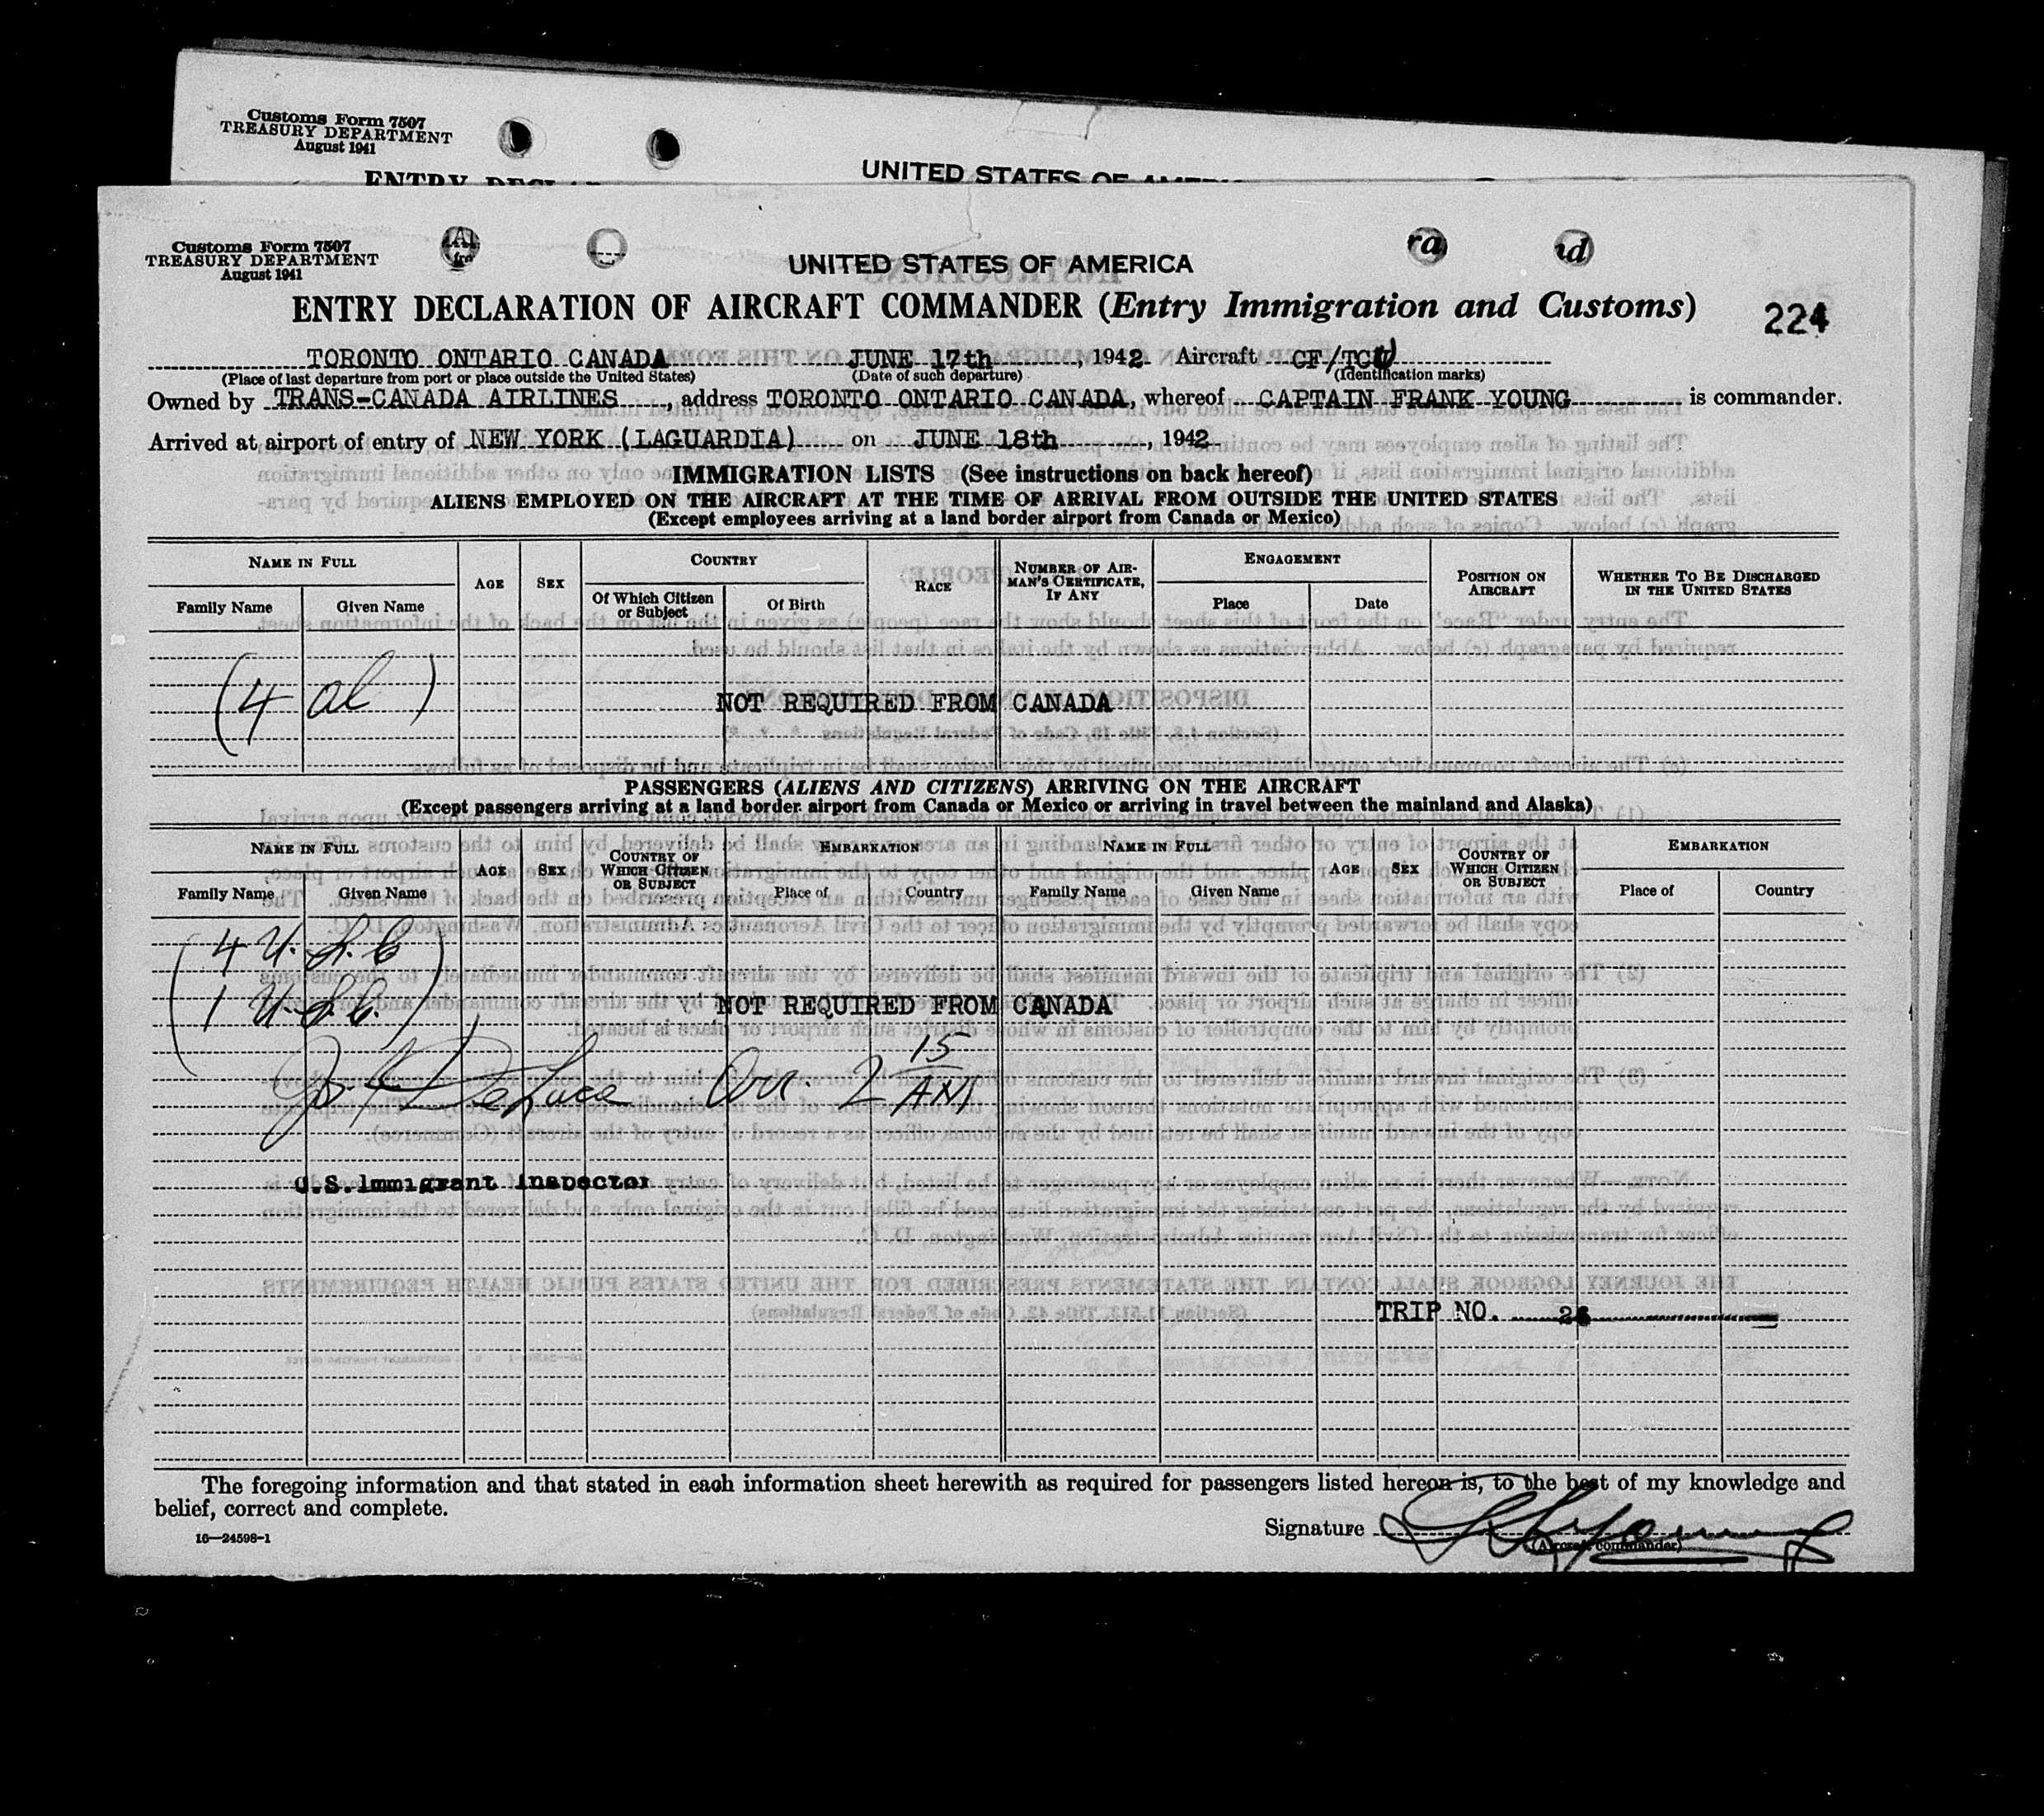 Customs Form 7507
TREASURY DEPARTMENT
August 1941
UNITED STATES OF
Customs Form 7507
TREASURY DEPARTMENT
August 1941
UNITED STATES OF AMERICA
ENTRY DECLARATION OF AIRCRAFT COMMANDER (Entry Immigration and Customs)
224
TORONTO ONTARIO CANADA JUNE 17th, 1942 Aircraft CF/TCU
(Place of last departure from port or place outside the United States) (Date of such departure) (Identification marks)
Owned by TRANS-CANADA AIRLINES, address TORONTO ONTARIO CANADA, whereof CAPTAIN FRANK YOUNG is commander.
Arrived at airport of entry of NEW YORK (LAGUARDIA) on JUNE 18th, 1942
IMMIGRATION LISTS (See instructions on back hereof)
ALIENS EMPLOYED ON THE AIRCRAFT AT THE TIME OF ARRIVAL FROM OUTSIDE THE UNITED STATES
(Except employees arriving at a land border airport from Canada or Mexico)
NAME IN FULL AGE SEX COUNTRY RACE NUMBER OF AIRMAN'S CERTIFICATE, IF ANY ENGAGEMENT POSITION ON AIRCRAFT WHETHER TO BE DISCHARGED IN THE UNITED STATES
Family Name Given Name Of Which Citizen or Subject Of Birth Place Date
(4 al)
NOT REQUIRED FROM CANADA
PASSENGERS (ALIENS AND CITIZENS) ARRIVING ON THE AIRCRAFT
(Except passengers arriving at a land border airport from Canada or Mexico or arriving in travel between the mainland and Alaska)
NAME IN FULL AGE SEX COUNTRY OF WHICH CITIZEN OR SUBJECT EMBARKATION NAME IN FULL AGE SEX COUNTRY OF WHICH CITIZEN OR SUBJECT EMBARKATION
Family Name Given Name Place of Country Family Name Given Name Place of Country
(4 U.S.C)
1 U.S.C.)
NOT REQUIRED FROM CANADA
DeLuca Arr. 2 15 AM
U.S.Immigrant Inspector
TRIP NO.
The foregoing information and that stated in each information sheet herewith as required for passengers listed hereon is, to the best of my knowledge and
belief, correct and complete.
Signature
(Aircraft commander)
16—24598-1